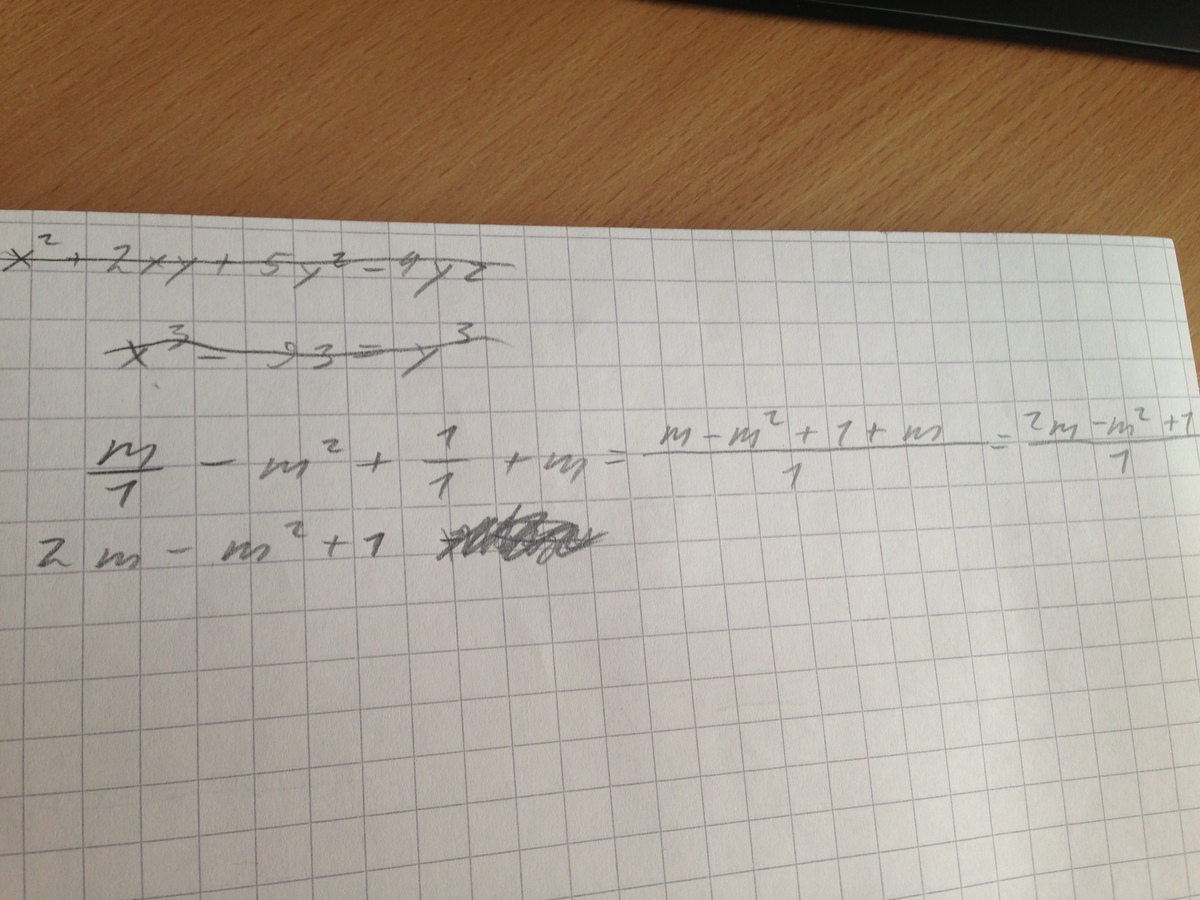 x² + 2xy + 5y² - 9y²
x³ - 93 = y³
m/1 - m² + 1/1 + m = (m - m² + 1 + m)/1 = (2m - m² + 1)/1
2m - m² + 1